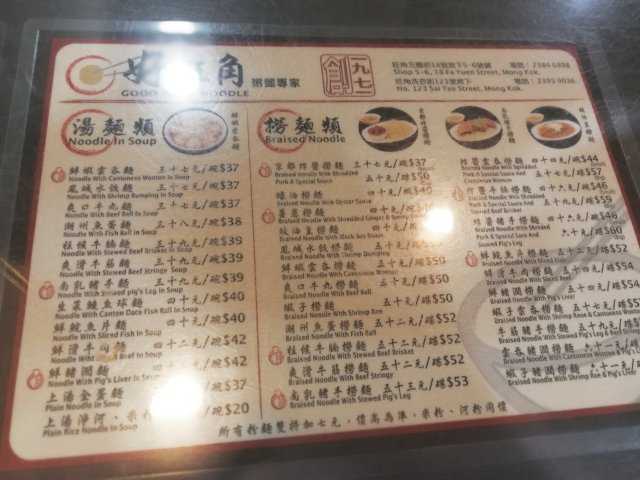 好旺角
粥麵專家
GOOD NOODLE
創 一九七
旺角花園街18號地下5-6號舖 電話：2384 6898
Shop 5-6, 18 Fa Yuen Street, Mong Kok.
旺角洗衣街123號地下 電話：2393 9036
No. 123 Sai Yee Street, Mong Kok.
湯麵類
Noodle In Soup
鮮蝦雲吞麵 三十七元/碗$37
Noodle With Cantonese Wonton in Soup
鳳城水餃麵 三十七元/碗$37
Noodle With Shrimp Dumping in Soup
爽口牛丸麵 三十七元/碗$37
Noodle With Beef Ball in Soup
潮州魚蛋麵 三十八元/碗$38
Noodle With Fish Ball in Soup
柱侯牛腩麵 三十九元/碗$39
Noodle With Stewed Beef Brisket in Soup
爽滑牛筋麵 三十九元/碗$39
Noodle With Stewed Beef Stringy Soup
南乳豬手麵 三十九元/碗$39
Noodle With Stewed pig's Leg in Soup
生菜鯪魚球麵 四十元/碗$40
Noodle With Canton Dace Fish Ball in Soup
鮮鯇魚片麵 四十元/碗$40
Noodle With Sliced Fish In Soup
鮮滑牛肉麵 四十二元/碗$42
Noodle With Beef In Soup
鮮豬潤麵 四十二元/碗$42
Noodle With Pig's Liver in Soup
上湯全蛋麵 三十七元/碗$37
Plain Noodle in Soup
上湯淨河、米粉 二十元/碗$20
Plain Rice Noodle In Soup
撈麵類
Braised Noodle
京都炸醬撈麵 三十七元/碗$37
Braised Noodle With Shredded
Pork & Special Sauce 五十元/碟$50
蠔油撈麵
Braised Noodle With Oyster Sauce
薑蔥撈麵
豉油皇撈麵
鳳城水餃撈麵
鮮蝦雲吞撈麵
Braised Noodle With Cantonese Wonton
爽口牛丸撈麵 五十元/碟$50
Braised Noodle With Beef Ball
蝦子撈麵 五十元/碟$50
Braised Noodle With Shrimp Roe
潮州魚蛋撈麵 五十二元/碟$52
Braised Noodle With Fish Ball
柱侯牛腩撈麵 五十二元/碟$52
Braised Noodle With Stewed Beef Brisket
爽滑牛筋撈麵 五十二元/碟$52
Braised Noodle With Beef Stringy
南乳豬手撈麵 五十三元/碟$53
Braised Noodle With Stewed Pig's Leg
炸醬雲吞撈麵 四十四元/碗$44
Braised Noodle With Shredded
Pork & Special Sauce And
Cantonese Wonton 五十七元/碟$57
炸醬牛腩撈麵 四十六元/碗$46
Braised Noodle With Shredded
Pork & Special Sauce And
Stewed Beef Brisket 五十九元/碟$59
炸醬豬手撈麵 四十六元/碗$46
Pork & Special Sauce And
Stewed Pig's Leg 六十元/碟$60
鮮鯇魚片撈麵 五十二元/碟$52
Braised Noodle With Sliced Fish
鮮滑牛肉撈麵 五十四元/碟$54
鮮豬潤撈麵 五十四元/碟$54
Braised Noodle With Pig's Liver
蝦子雲吞撈麵
牛筋豬手撈麵
雲吞豬潤撈麵
蝦子豬潤撈麵
所有粉麵雙拼加七元，價高為準，米粉、河粉同價